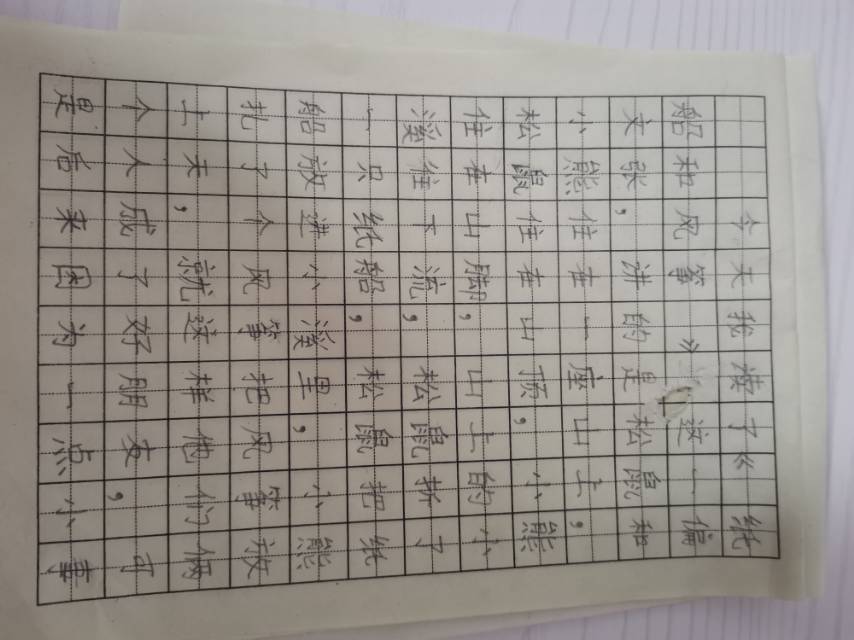 今天我读了《纸
船和风筝》这一偏
文张，讲的是松鼠和
小熊住在一座山上，
松鼠住在山顶，小熊
住在山脚，山上的小
溪往下流，松鼠折了
一只纸船，松鼠把纸
船放进小溪里，小熊
扎了个风筝把风筝放
上天，就这样他们俩
个人成了好朋友，可
是后来因为一点小事